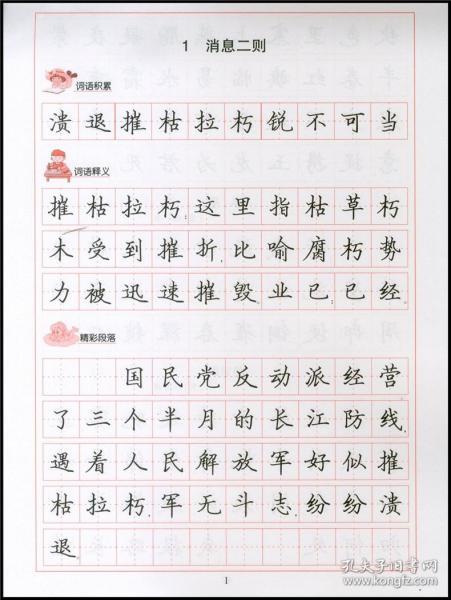 1 消息二则
词语积累
溃退摧枯拉朽锐不可当
词语释义
摧枯拉朽:这里指枯草朽
木受到摧折,比喻腐朽势
力被迅速摧毁。业已:已经
精彩段落
国民党反动派经营
了三个半月的长江防线,
遇着人民解放军好似摧
枯拉朽,军无斗志,纷纷溃
退。
1
孔夫子旧书网
www.kongfz.com